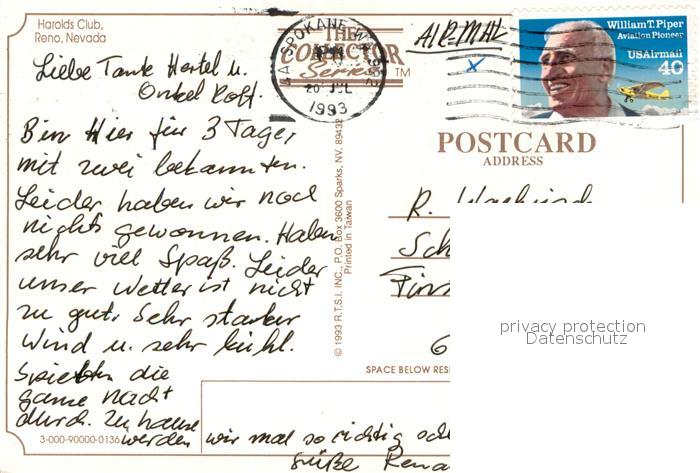 Harolds Club,
Reno, Nevada
Liebe Tante Hertel u.
Onkel Rolf.
Bin Hier für 3 Tage,
mit zwei bekannten.
Leider haben wir noch
nichts gewonnen. Haben
sehr viel Spaß. Leider
unser Wetter ist nicht
zu gut. Sehr starker
Wind u. sehr kühl.
Spielten die
ganze Nacht
durch. Zu hause
werden wir mal so richtig
Grüße Rena
3-000-90000-0136
THE
COLLECTOR
Series TM
SPOKANE WA
20 JUL
1993
© 1993 R.T.S.I. INC., P.O. Box 3600 Sparks, NV. 89432
Printed in Taiwan
AIR-MAIL
x
William T. Piper
Aviation Pioneer
USAirmail
40
POSTCARD
ADDRESS
R.
Sch
Fins
6
SPACE BELOW RES
privacy protection
Datenschutz